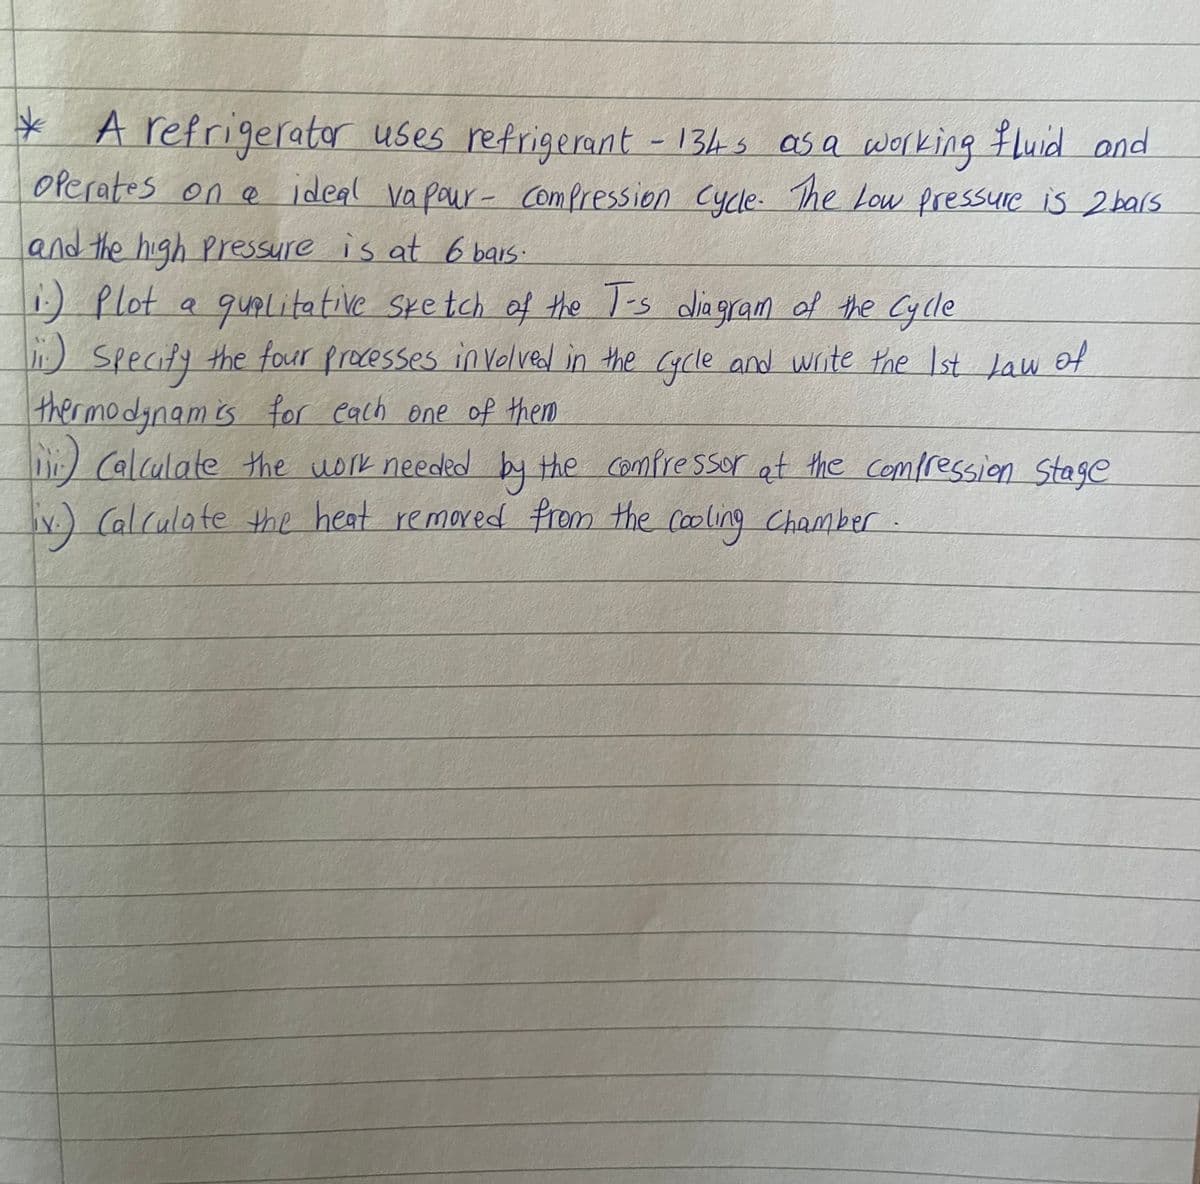 * A refrigerator uses refrigerant - 134s as a working fluid and
operates on a ideal vapour - compression cycle. The Low pressure is 2 bars
and the high pressure is at 6 bars.
i.) Plot a qualitative sketch of the T-s diagram of the cycle
ii.) Specify the four processes involved in the cycle and write the 1st Law of
thermodynamis for each one of them
iii.) Calculate the work needed by the compressor at the compression stage
iv.) Calculate the heat removed from the cooling chamber.